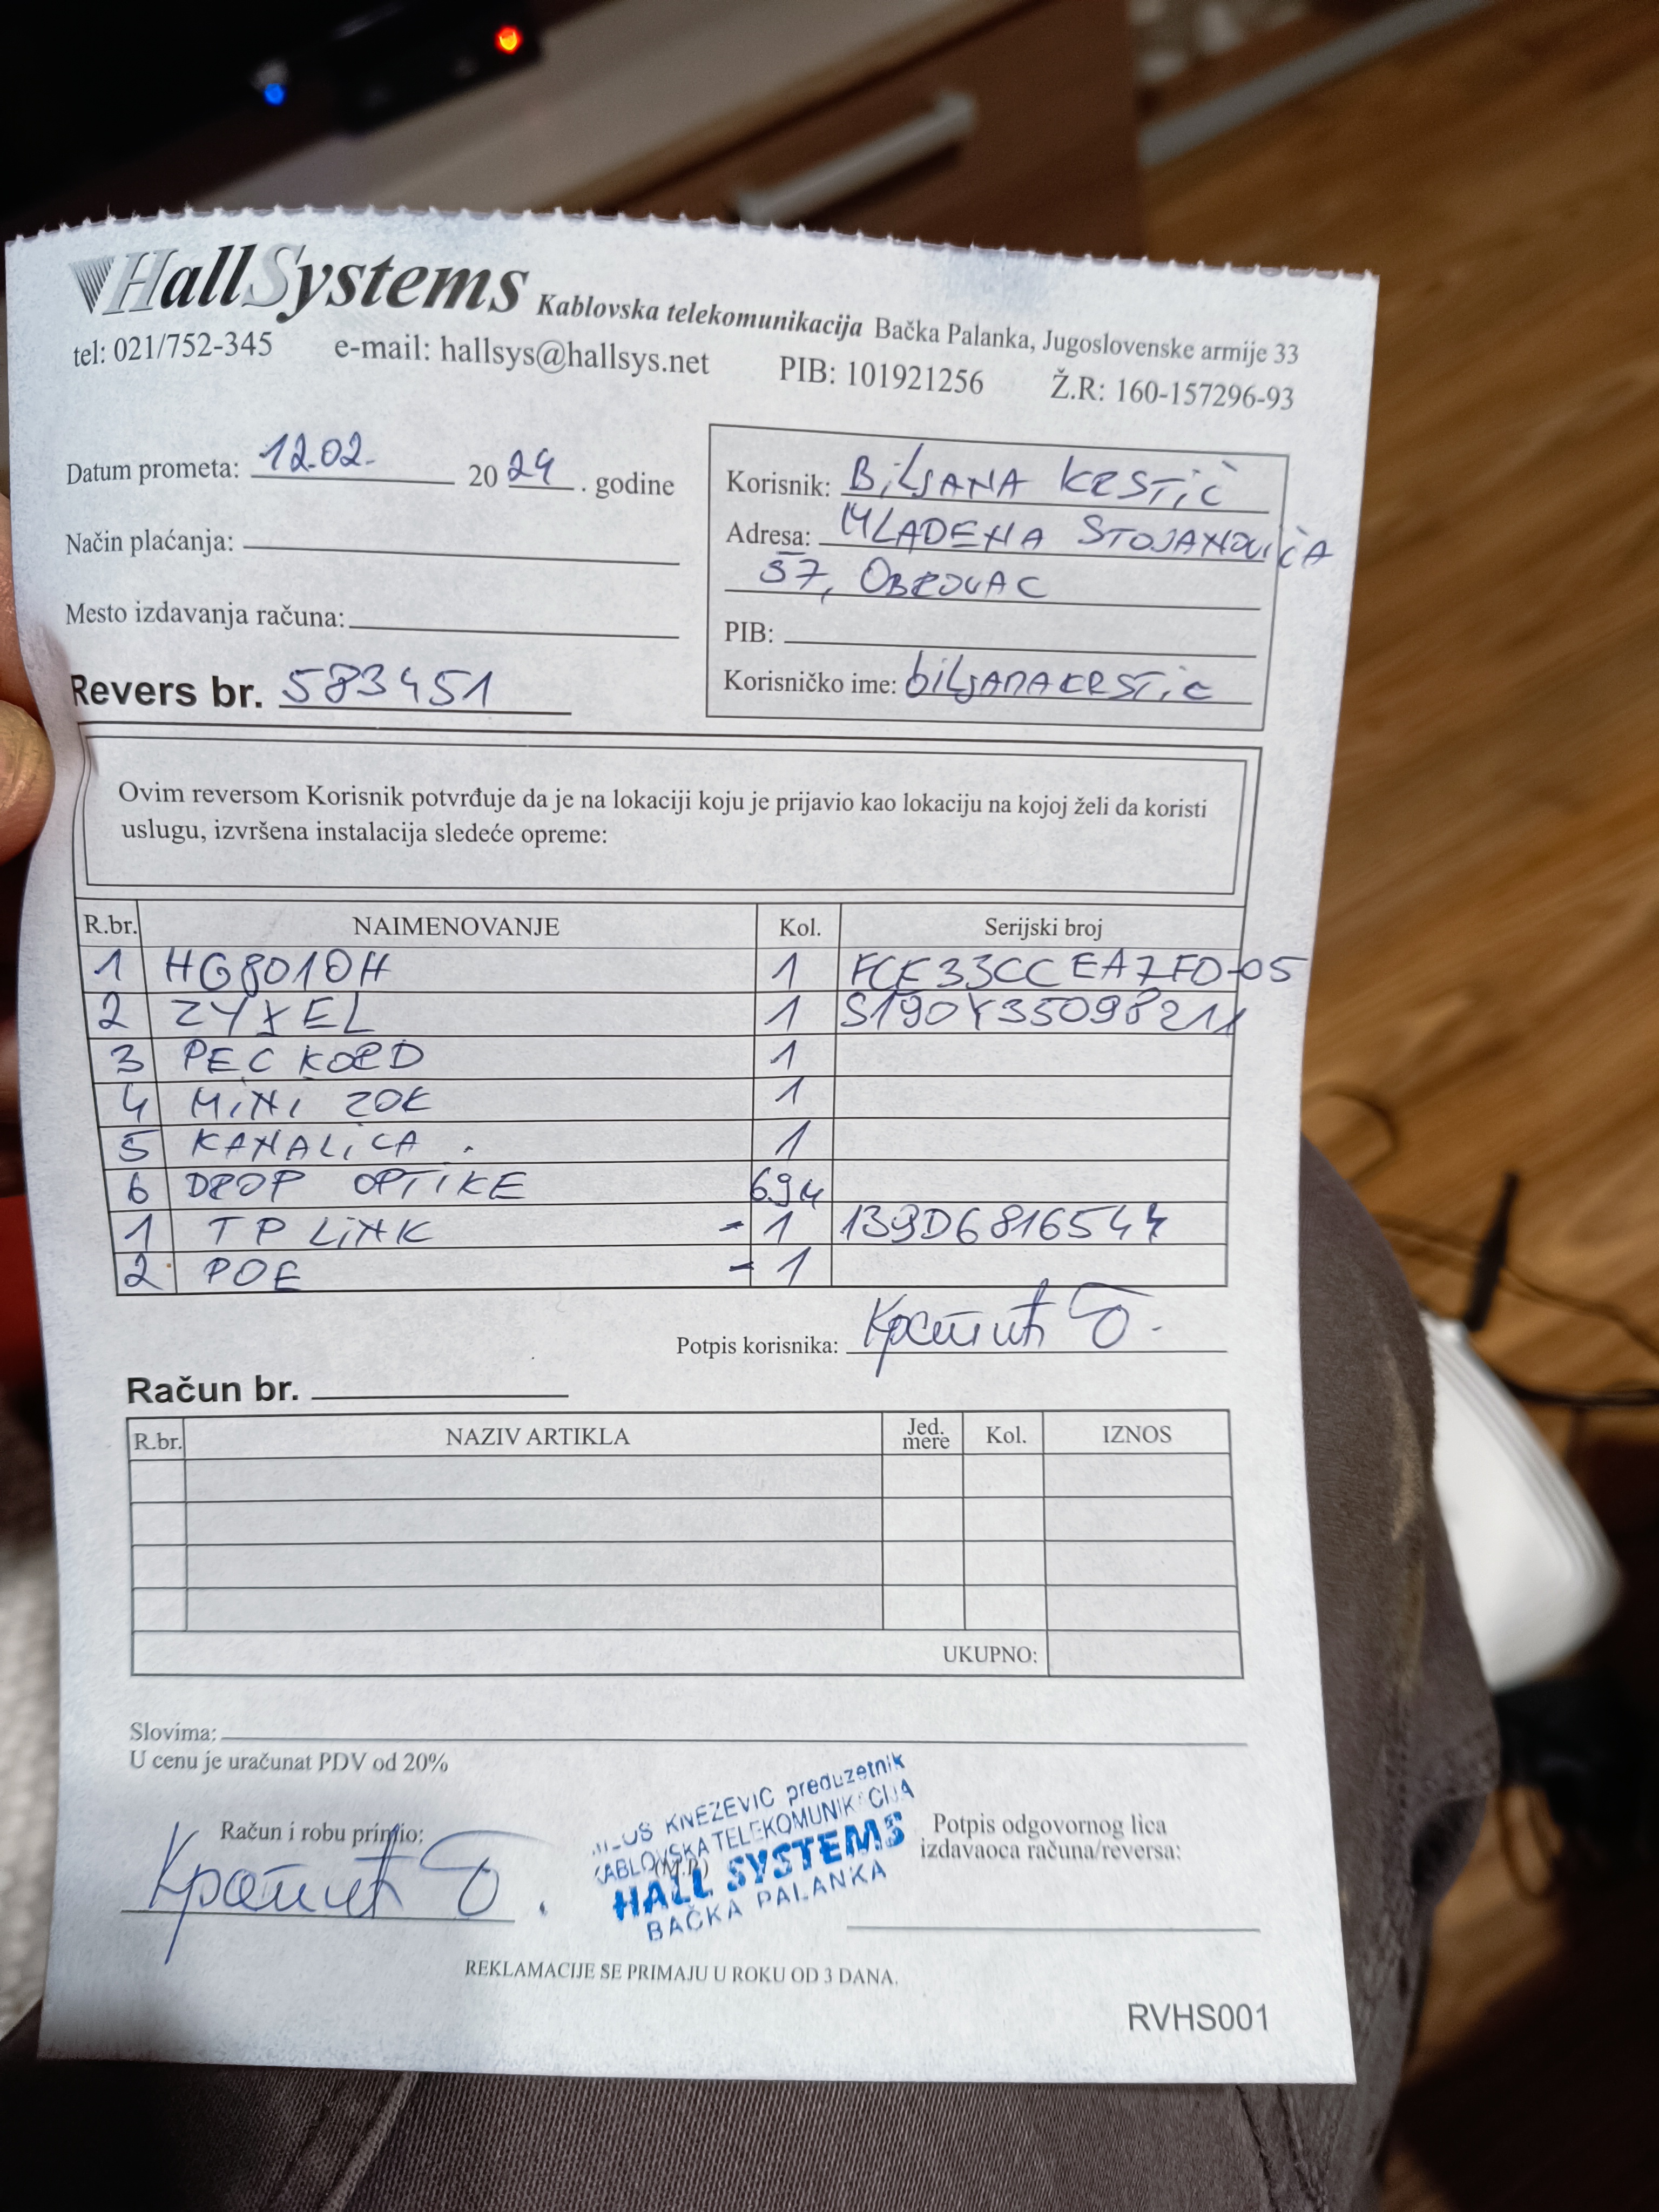 HallSystems Kablovska telekomunikacija Bačka Palanka, Jugoslovenske armije 33
tel: 021/752-345 e-mail: hallsys@hallsys.net PIB: 101921256 Ž.R: 160-157296-93
Datum prometa: 12.02. 2024. godine
Način plaćanja:
Mesto izdavanja računa:
Revers br. 583451
Korisnik: BiLJANA KRSTiĆ
Adresa: MLADENA STOJANOViĆA
57, OBROVAC
PIB:
Korisničko ime: biljANAKRSTic
Ovim reversom Korisnik potvrđuje da je na lokaciji koju je prijavio kao lokaciju na kojoj želi da koristi
uslugu, izvršena instalacija sledeće opreme:
R.br. NAIMENOVANJE Kol. Serijski broj
1 HG8010H 1 FCE33CCEA7FD-05
2 ZYXEL 1 S190Y35098211
3 PEC KORD 1
4 MiNi ZOK 1
5 KANALiCA 1
6 DROP OPTIKE
1 TP LiNK - 1 139D6816544
2 POE - 1
Potpis korisnika: Крстић Б.
Račun br.
R.br. NAZIV ARTIKLA Jed. mere Kol. IZNOS
UKUPNO:
Slovima:
U cenu je uračunat PDV od 20%
Račun i robu primio:
Крстић Б.
KNEZEVIC preduzetnik
KABLOVSKA TELEKOMUNIKACIJA
(M.P.)
HALL SYSTEMS
BAČKA PALANKA
Potpis odgovornog lica
izdavaoca računa/reversa:
REKLAMACIJE SE PRIMAJU U ROKU OD 3 DANA.
RVHS001